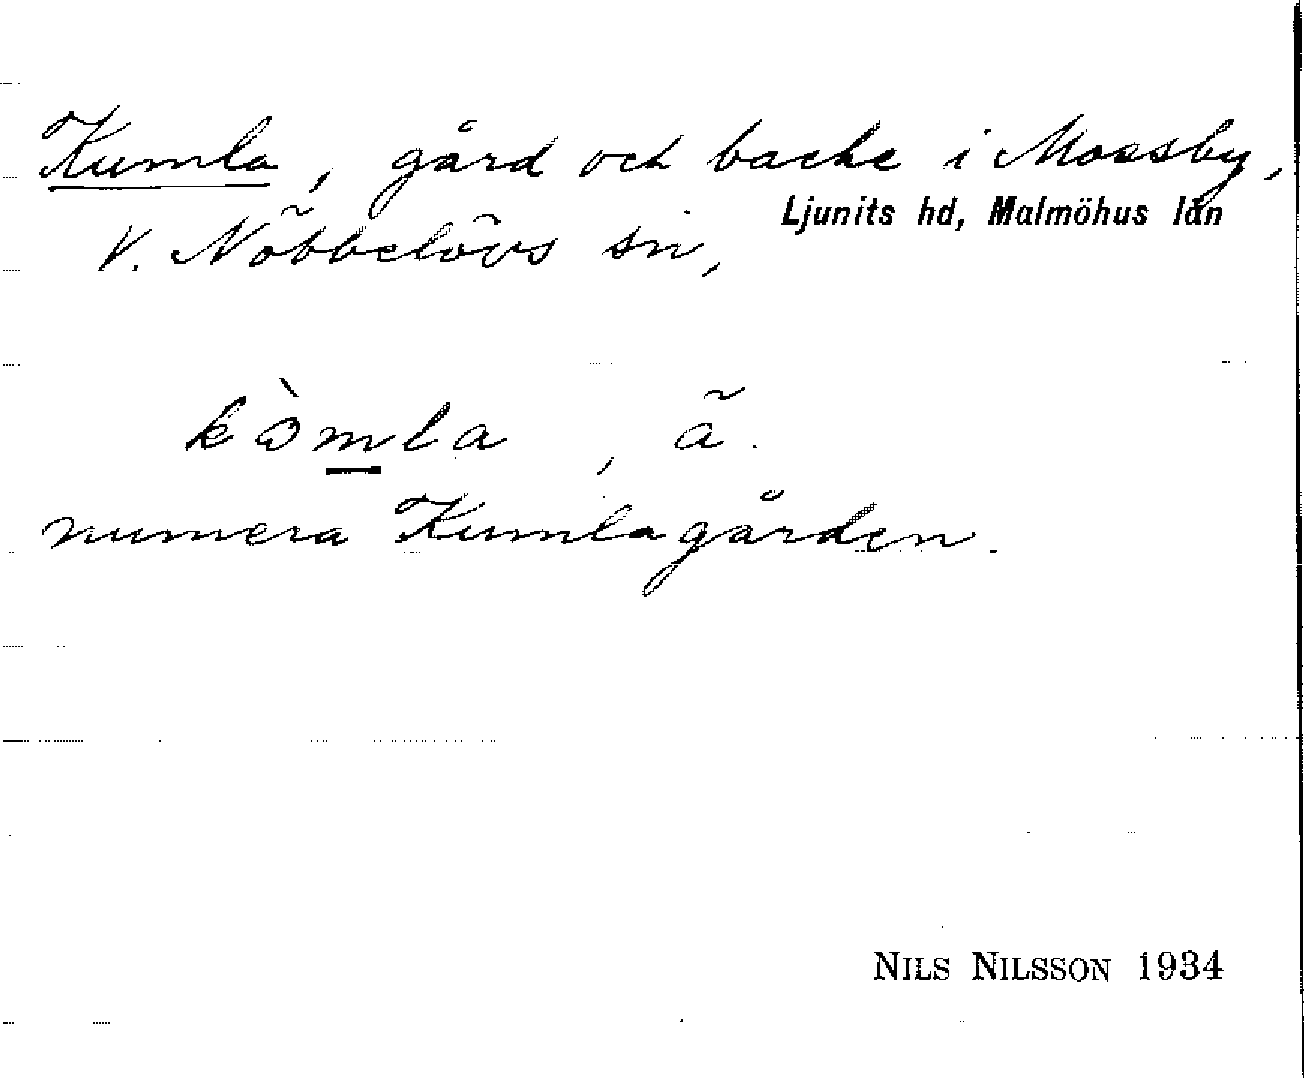 Kumla, gård och backe i Mossby,
Ljunits hd, Malmöhus län
V. Nöbbelövs sn,
kòmla, ä.
numera Kumlagården.
NILS NILSSON 1934